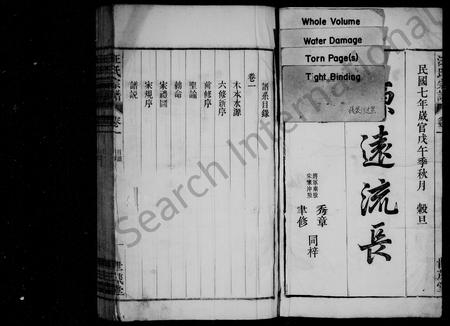 Whole Volume
Water Damage
Torn Page(s)
Tight Binding
民國七年歲官戊午季秋月 穀旦
源遠流長
秀章
聿修
同梓
譜系目錄
卷一
木本水源
六修新序
前修序
聖諭
勅命
宋禮圖
宗規序
譜説
Search International